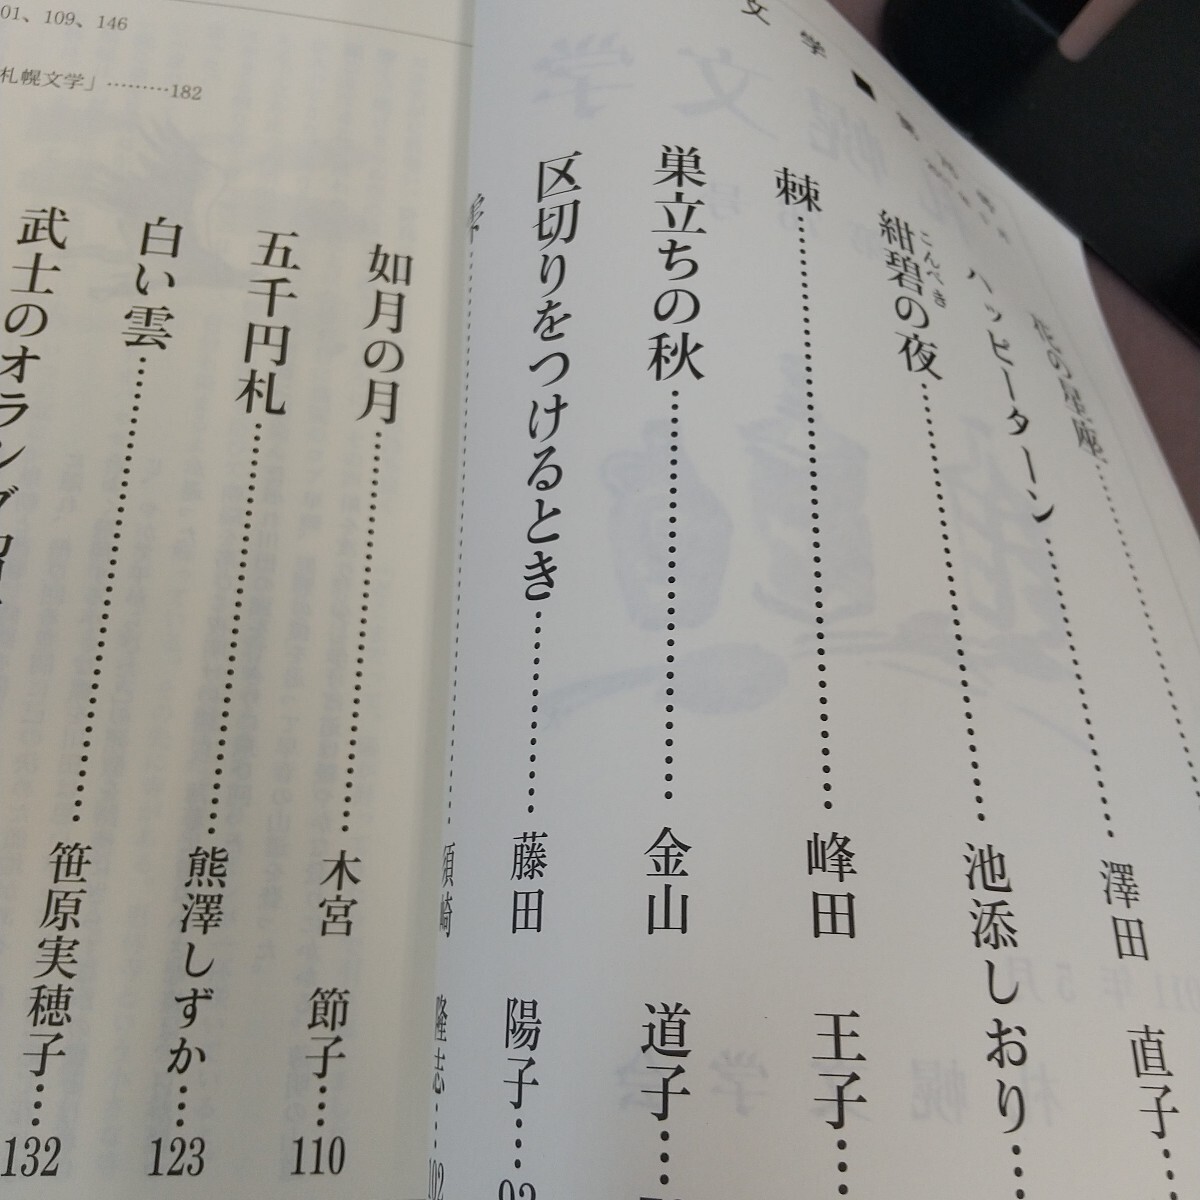 文学■
花の星座
ハッピーターン………澤田 直子…
紺碧の夜………池添しおり…
こんぺき
棘………峰田 王子…
巣立ちの秋………金山 道子…
区切りをつけるとき………藤田 陽子…
………須崎 隆志…102
如月の月………木宮 節子…110
五千円札………熊澤しずか…123
白い雲………笹原実穂子…132
武士のオランダ
01、109、146
札幌文学」………182